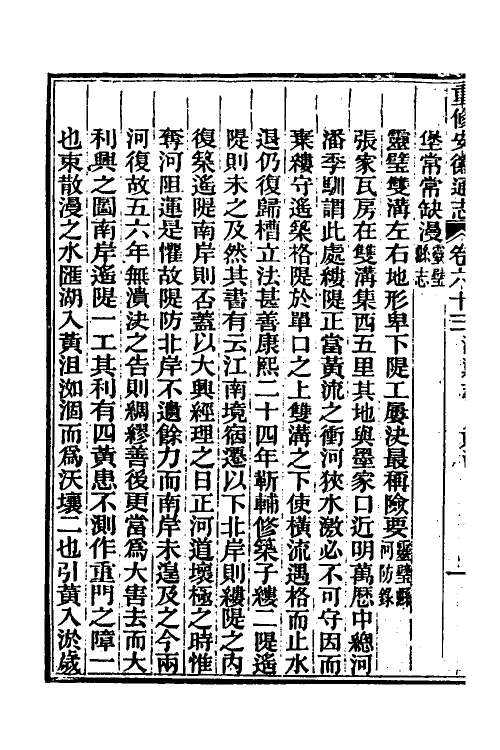 重修安徽通志 卷六十三
堡常常缺漫靈璧縣志
靈璧雙溝左右地形卑下隄工屢決最稱險要靈璧縣河防錄
張家瓦房在雙溝集西五里其地與墨家口近明萬歷中總河
潘季馴謂此處縷隄正當黃流之衝河狹水激必不可守因而
棄縷守遙築格隄於單口之上雙溝之下使橫流遇格而止水
退仍復歸槽立法甚善康熙二十四年靳輔修築子縷二隄遙
隄則未之及然其書有云江南境宿遷以下北岸則縷隄之內
復築遙隄南岸則否蓋以大興經理之日正河道壞極之時惟
奪河阻運是懼故隄防北岸不遺餘力而南岸未遑及之今兩
河復故五六年無潰決之告則綢繆善後更當爲大害去而大
利興之圖南岸遙隄一工其利有四黃患不測作重門之障一
也東散漫之水匯湖入黃沮洳涸而爲沃壤二也引黃入淤歲